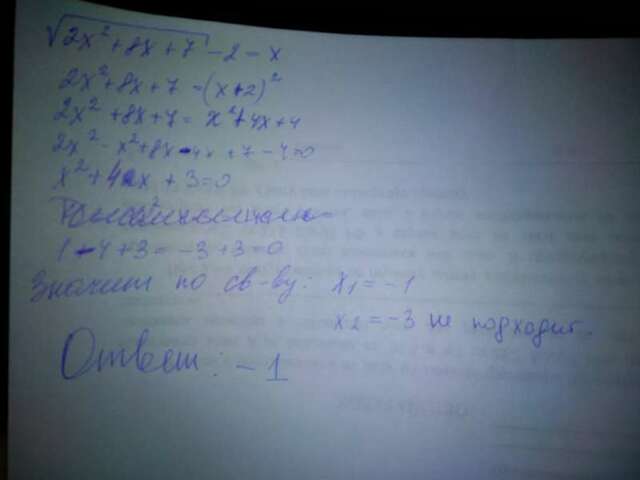 √2x²+8x+7 - 2 = x
2x²+8x+7 = (x+2)²
2x² +8x+7 = x²+4x+4
2x² - x²+8x-4x+7-4=0
x²+4x+3=0
1-4+3=-3+3=0
Значит по св-ву: x₁=-1
x₂=-3 не подходит.
Ответ: -1